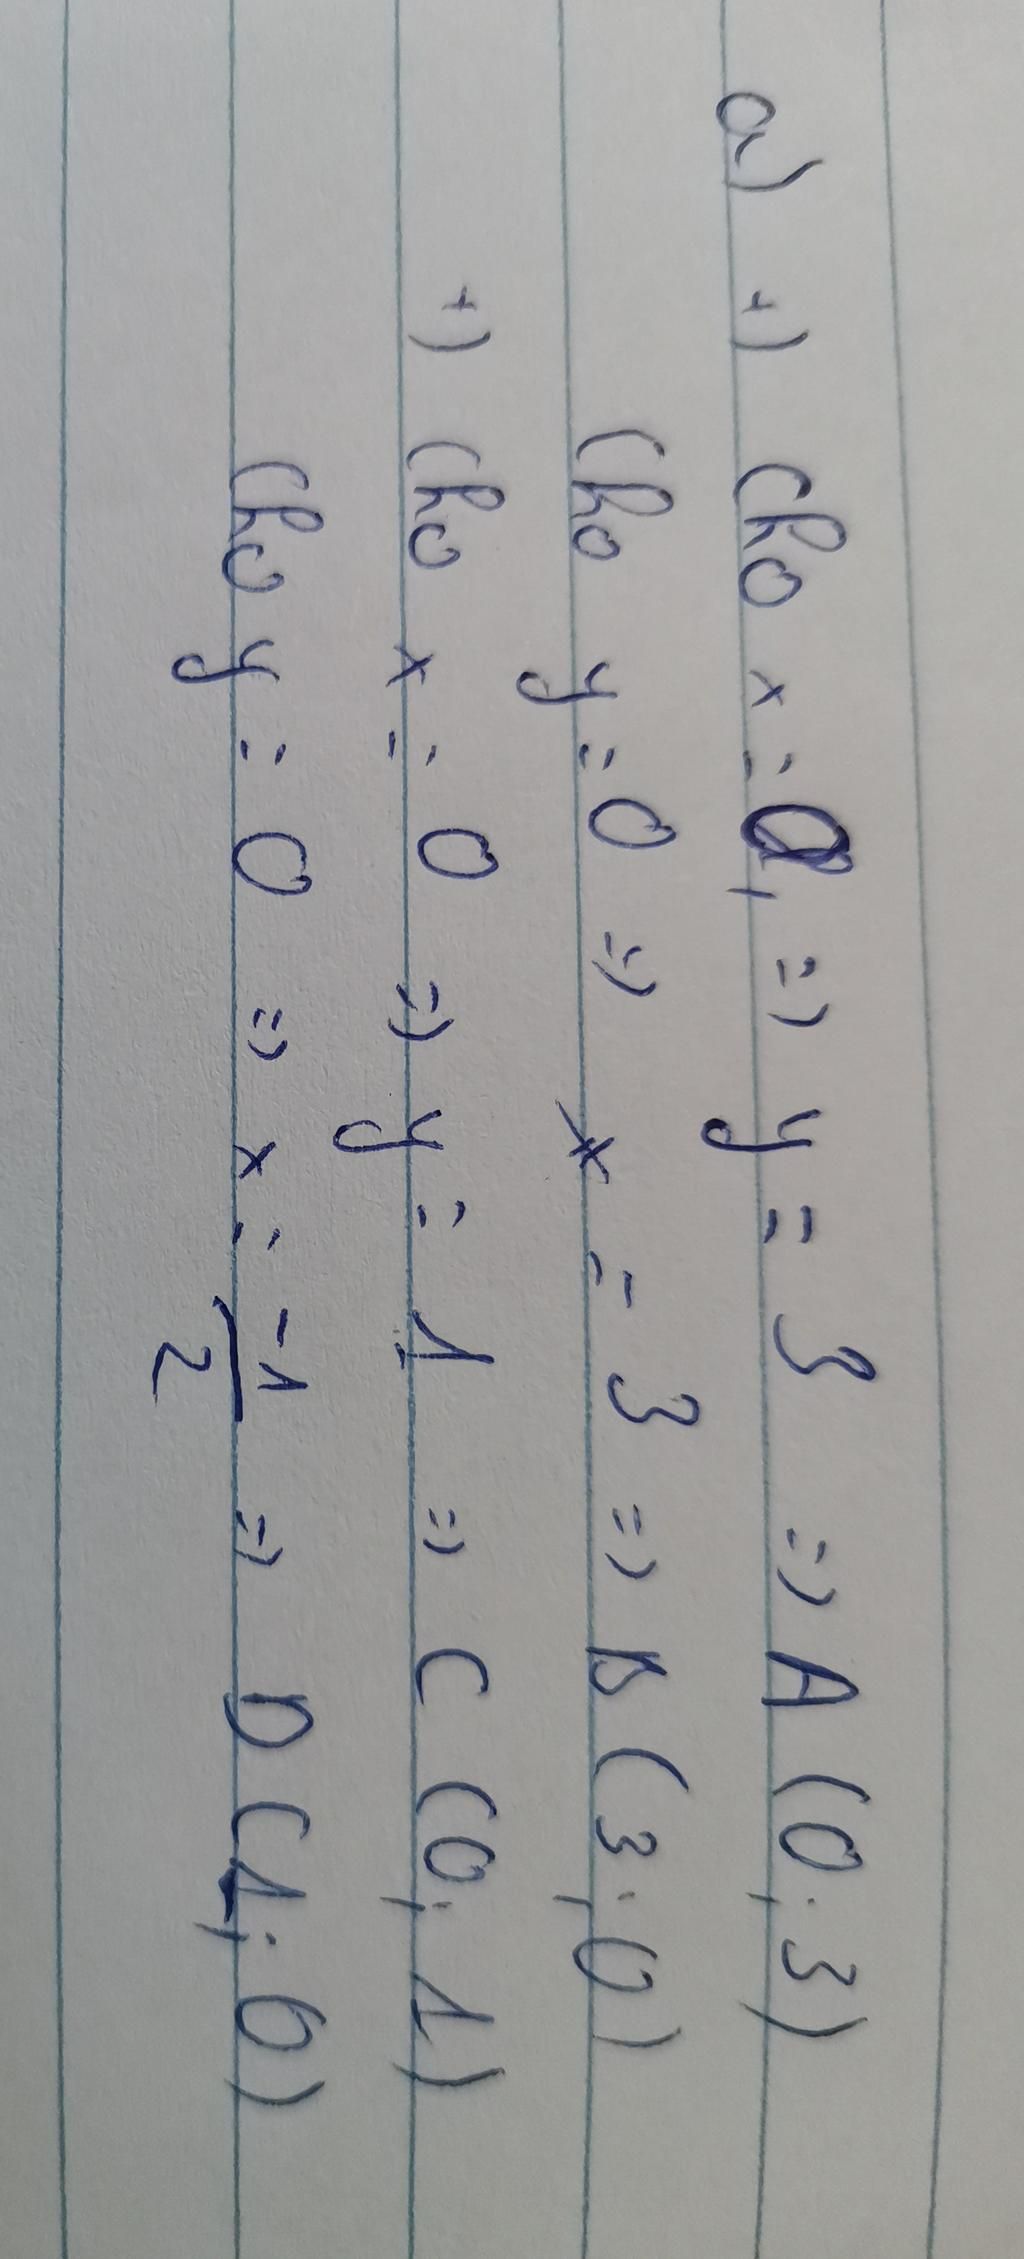 a) +) Cho x = 0, => y = 3 => A (0; 3)
Cho y = 0 => x = 3 => B (3; 0)
+) Cho x = 0 => y = 1 => C (0; 1)
Cho y = 0 => x = -1/2 => D (1; 0)